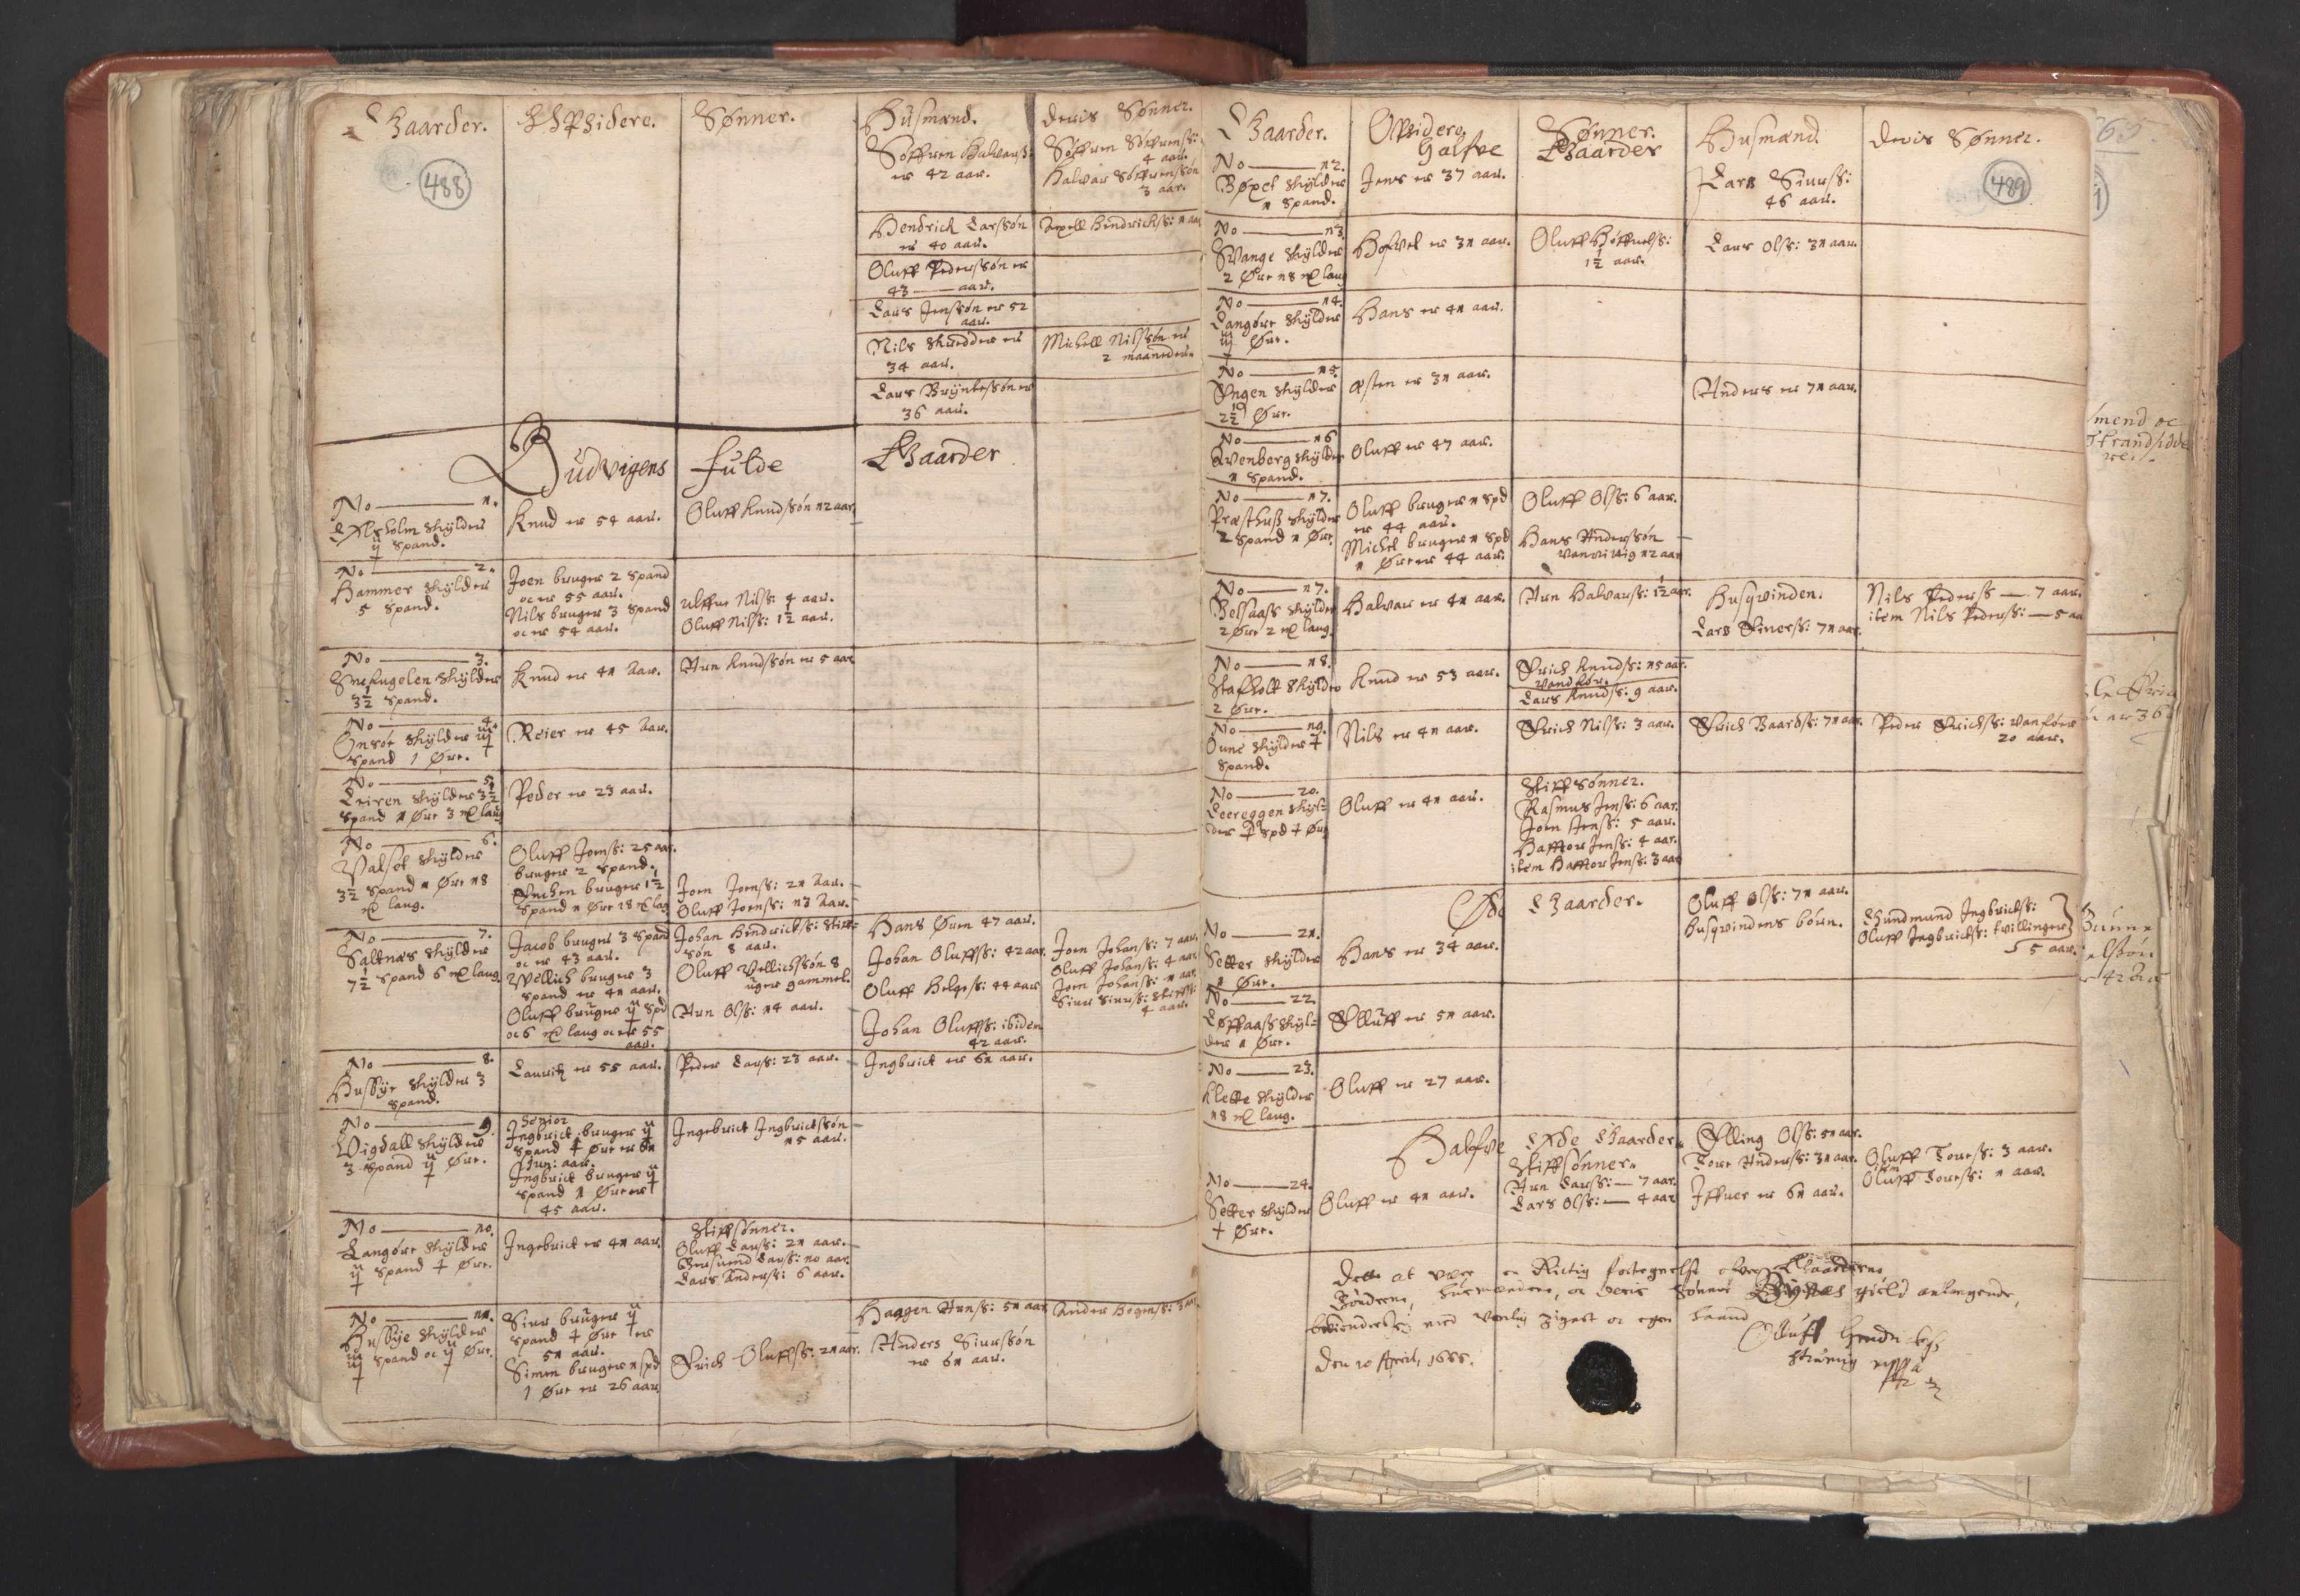 Gaarder.
Opsidere.
Sønner.
Husmænd.
Deris Sønner.
488
Søffuren Halvorß:
er 42 aar.
Søffuren Søffuernß:
4 aar.
Halvar Søffuernsøn
3 aar.
Hendrich Larssøn
er 40 aar.
Axell Hendrichs: 1 aar
Oluff Pederssøn er
43 aar.
Lars Jenssøn er 52
aar.
Nils Skredder er
34 aar.
Michell Nilssøn er
2 maaneder.
Lars Brÿntessøn er
36 aar.
Budvigens fulde Gaarder
No 1.
skÿlder
ÿ Spand.
Knud er 54 aar.
Oluff Knudssøn 12 aar
No 2.
Hammer skÿlder
5 Spand.
Joen bruger 2 Spand
oc er 55 aar.
Nils bruger 3 Spand
oc er 54 aar.
Nilss: 4 aar.
Oluff Nilss: 1½ aar.
No 3.
skÿlder
3½ Spand.
Knud er 41 Aar.
Arn Knudssøn er 5 aar
No 4.
Onsøe skÿlder
Spand 1 Øre.
Reier er 45 Aar.
No 5.
Leiren skÿlder 3½
Spand 1 Øre 3 laug
Peder er 23 aar.
No 6.
skÿlder
3½ Spand 1 Øre 18
laug.
Oluff Joenss: 25 aar.
bruger 2 Spand.
bruger 1½
Spand 1 Øre 18 lag
Joen Joenss: 21 Aar.
Oluff Joenss: 13 Aar.
No 7.
Saltnæs skÿlder
7½ Spand 6 laug.
Jacob bruger 3 Spand
oc er 43 aar.
Wellich bruger 3
Spand er 41 aar.
Oluff bruger ÿ Spd
oc 6 laug oc er 55
aar.
Johan Hendrichs: Stiff-
søn 8 aar.
Oluff Wellichssøn 8
uger gammel.
Arn Olss: 14 aar.
Hans Ørem 47 aar.
Johan Oluffs: 42 aar.
Oluff Helgess: 44 aar
Johan Oluffs: ibidem
42 aar.
Joen Johanss: 7 aar.
Oluff Johanss: 4 aar
Joen Johanss: 1 aar.
Siur Siurss:
4 aar.
No 8.
Hussÿe skÿlder 3
Spand.
Lauritz er 55 aar.
Peder Larss: 23 aar.
Ingbrict er 61 aar.
No 9.
Wigdall skÿlder
3 Spand ÿ Øre.
Senior
Ingbrict bruger ÿ
Spand Øre er 61
Jun: aar.
Ingbrict bruger ÿ
Spand 1 Øre er
45 aar.
Ingebrict Ingbrictssøn
15 aar.
No 10.
Langøre skÿlder
ÿ Spand Øre.
Ingebrict er 41 aar
Stiffsønner.
Oluff Larss: 21 aar.
Larss: 10 aar
Lars Anderss: 6 aar.
No 11.
Hussÿe skÿlder
Spand oc ÿ Øre.
Siur bruger ÿ
Spand Øre er
51 aar.
Simen bruger 1 spd
1 Øre er 26 aar
Erich Oluffs: 21 aar.
Haagen Arnss: 51 aar
Anders Siurssøn
er 61 aar.
Anders Hogenss: 3 aar
Gaarder.
Opsidere.
Sønner.
Husmænd.
Deris Sønner.
Halfve Gaarder
489
No 12.
Bøxel skÿlder
1 Spand.
Jens er 37 aar.
Lars Siurss:
46 aar.
No 13.
skÿlder
2 Øre 18 laug
er 31 aar.
Oluff
1½ aar.
Lars Olss: 31 aar.
No 14.
Langøre skÿlder
Øre.
Hans er 41 aar.
No 15.
Engen skÿlder
2½ Øre.
Østen er 31 aar.
Anders er 71 aar.
No 16
Qvenberg skÿlder
1 Spand.
Oluff er 47 aar.
No 17.
Præsthuß skÿlder
2 Spand 1 Øre
Oluff bruger 1 Spd
er 44 aar.
Michel bruger 1 Spd
1 Øre er 44 aar.
Oluff Olss: 6 aar.
Hans Anderssøn
vanvittig 12 aar
No 17.
Belsaass skÿlder
2 Øre 2 laug.
Halvar er 41 aar.
Arn Halvarss: 1½ aar.
Husqvinden.
Lars Einerss: 71 aar.
Nils Pederss 7 aar.
item Nils Pederss: 5 aa
No 18.
Stafholt skÿlder
2 Øre.
Knud er 53 aar.
Erich Knudss: 15 aar.
vanfør.
Lars Knudss: 9 aar.
No 19.
Oune skÿlder
Spand.
Nils er 41 aar.
Erich Nilss: 3 aar.
Erich Baardss: 71 aar.
Peder Erichss: vanför
20 aar.
No 20.
Leereggen skÿl-
der Spd Øre
Oluff er 41 aar.
Stiffsønner.
Rasmus Jenss: 6 aar.
Joen Jenss: 5 aar.
Hafftor Jenss: 4 aar.
item Hafftor Jenss: 3 aar
Øde Gaarder.
No 21.
Setter skÿlder
1 Øre.
Hans er 34 aar.
Oluff Olss: 71 aar.
Husqvindens børn.
Gundmund Ingbrictss:
Oluff Ingbrictss: tvillinger
5 aar.
No 22.
Løffaass skÿl-
der 1 Øre.
Elluff er 51 aar.
No 23.
Klette skÿlder
18 laug.
Oluff er 27 aar.
Halfve Øde Gaarder.
No 24.
Setter skÿlder
Øre.
Oluff er 41 aar.
Stiffsønner.
Arn Larss: 7 aar.
Lars Olss: 4 aar
Elling Olss: 51 aar.
Tore Anderss: 31 aar.
Iffuer er 61 aar.
Oluff Toress: 3 aar.
item
Oluff Toress: 1 aar.
Dette at være en Rictig fortegnelse ofver Gaarderne
Bønderne, husmændene, oc deris Sønner Bÿnæs gield anlangende,
bekiender Jeg med vanlig Zignet oc egen haand
Den 10 April, 1666.
Oluff